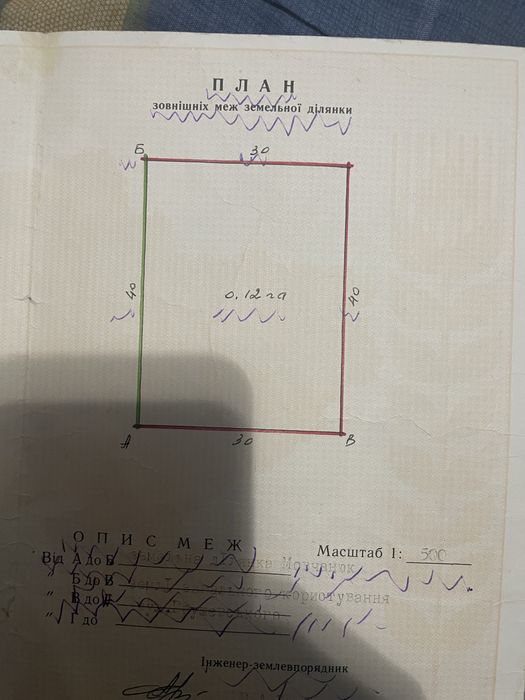 ПЛАН
зовнішніх меж земельної ділянки
Б
30
40
0.12 га
40
А
30
В
ОПИС МЕЖ
Масштаб 1: 500
Від А до Б земельна ділянка Мовчанюк
" Б до В землі загального користування
" В до
" Г до
Інженер-землевпорядник